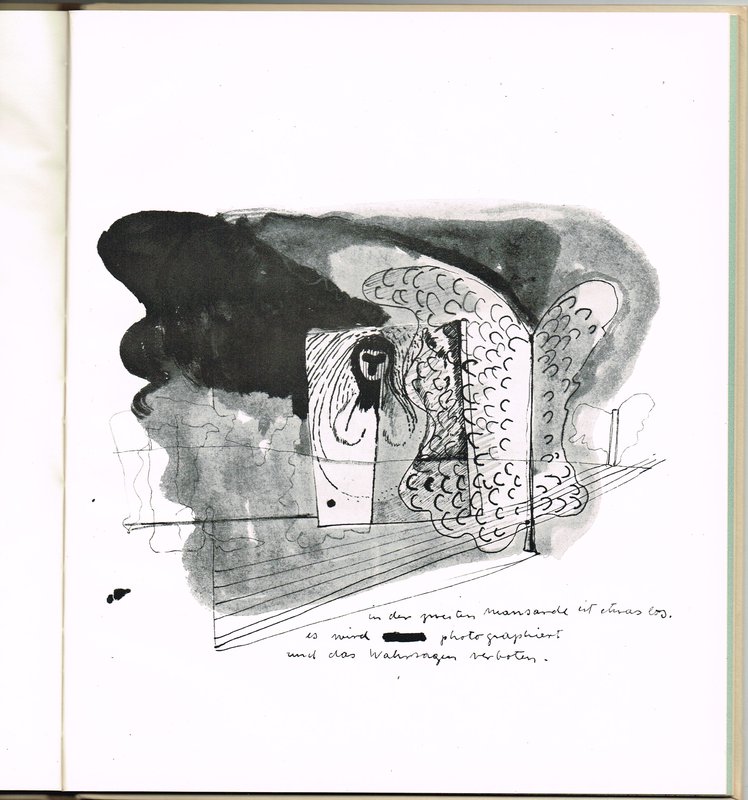 in der zweiten mansarde ist etwas los.
es wird photographiert
und das Wahrsagen verboten.